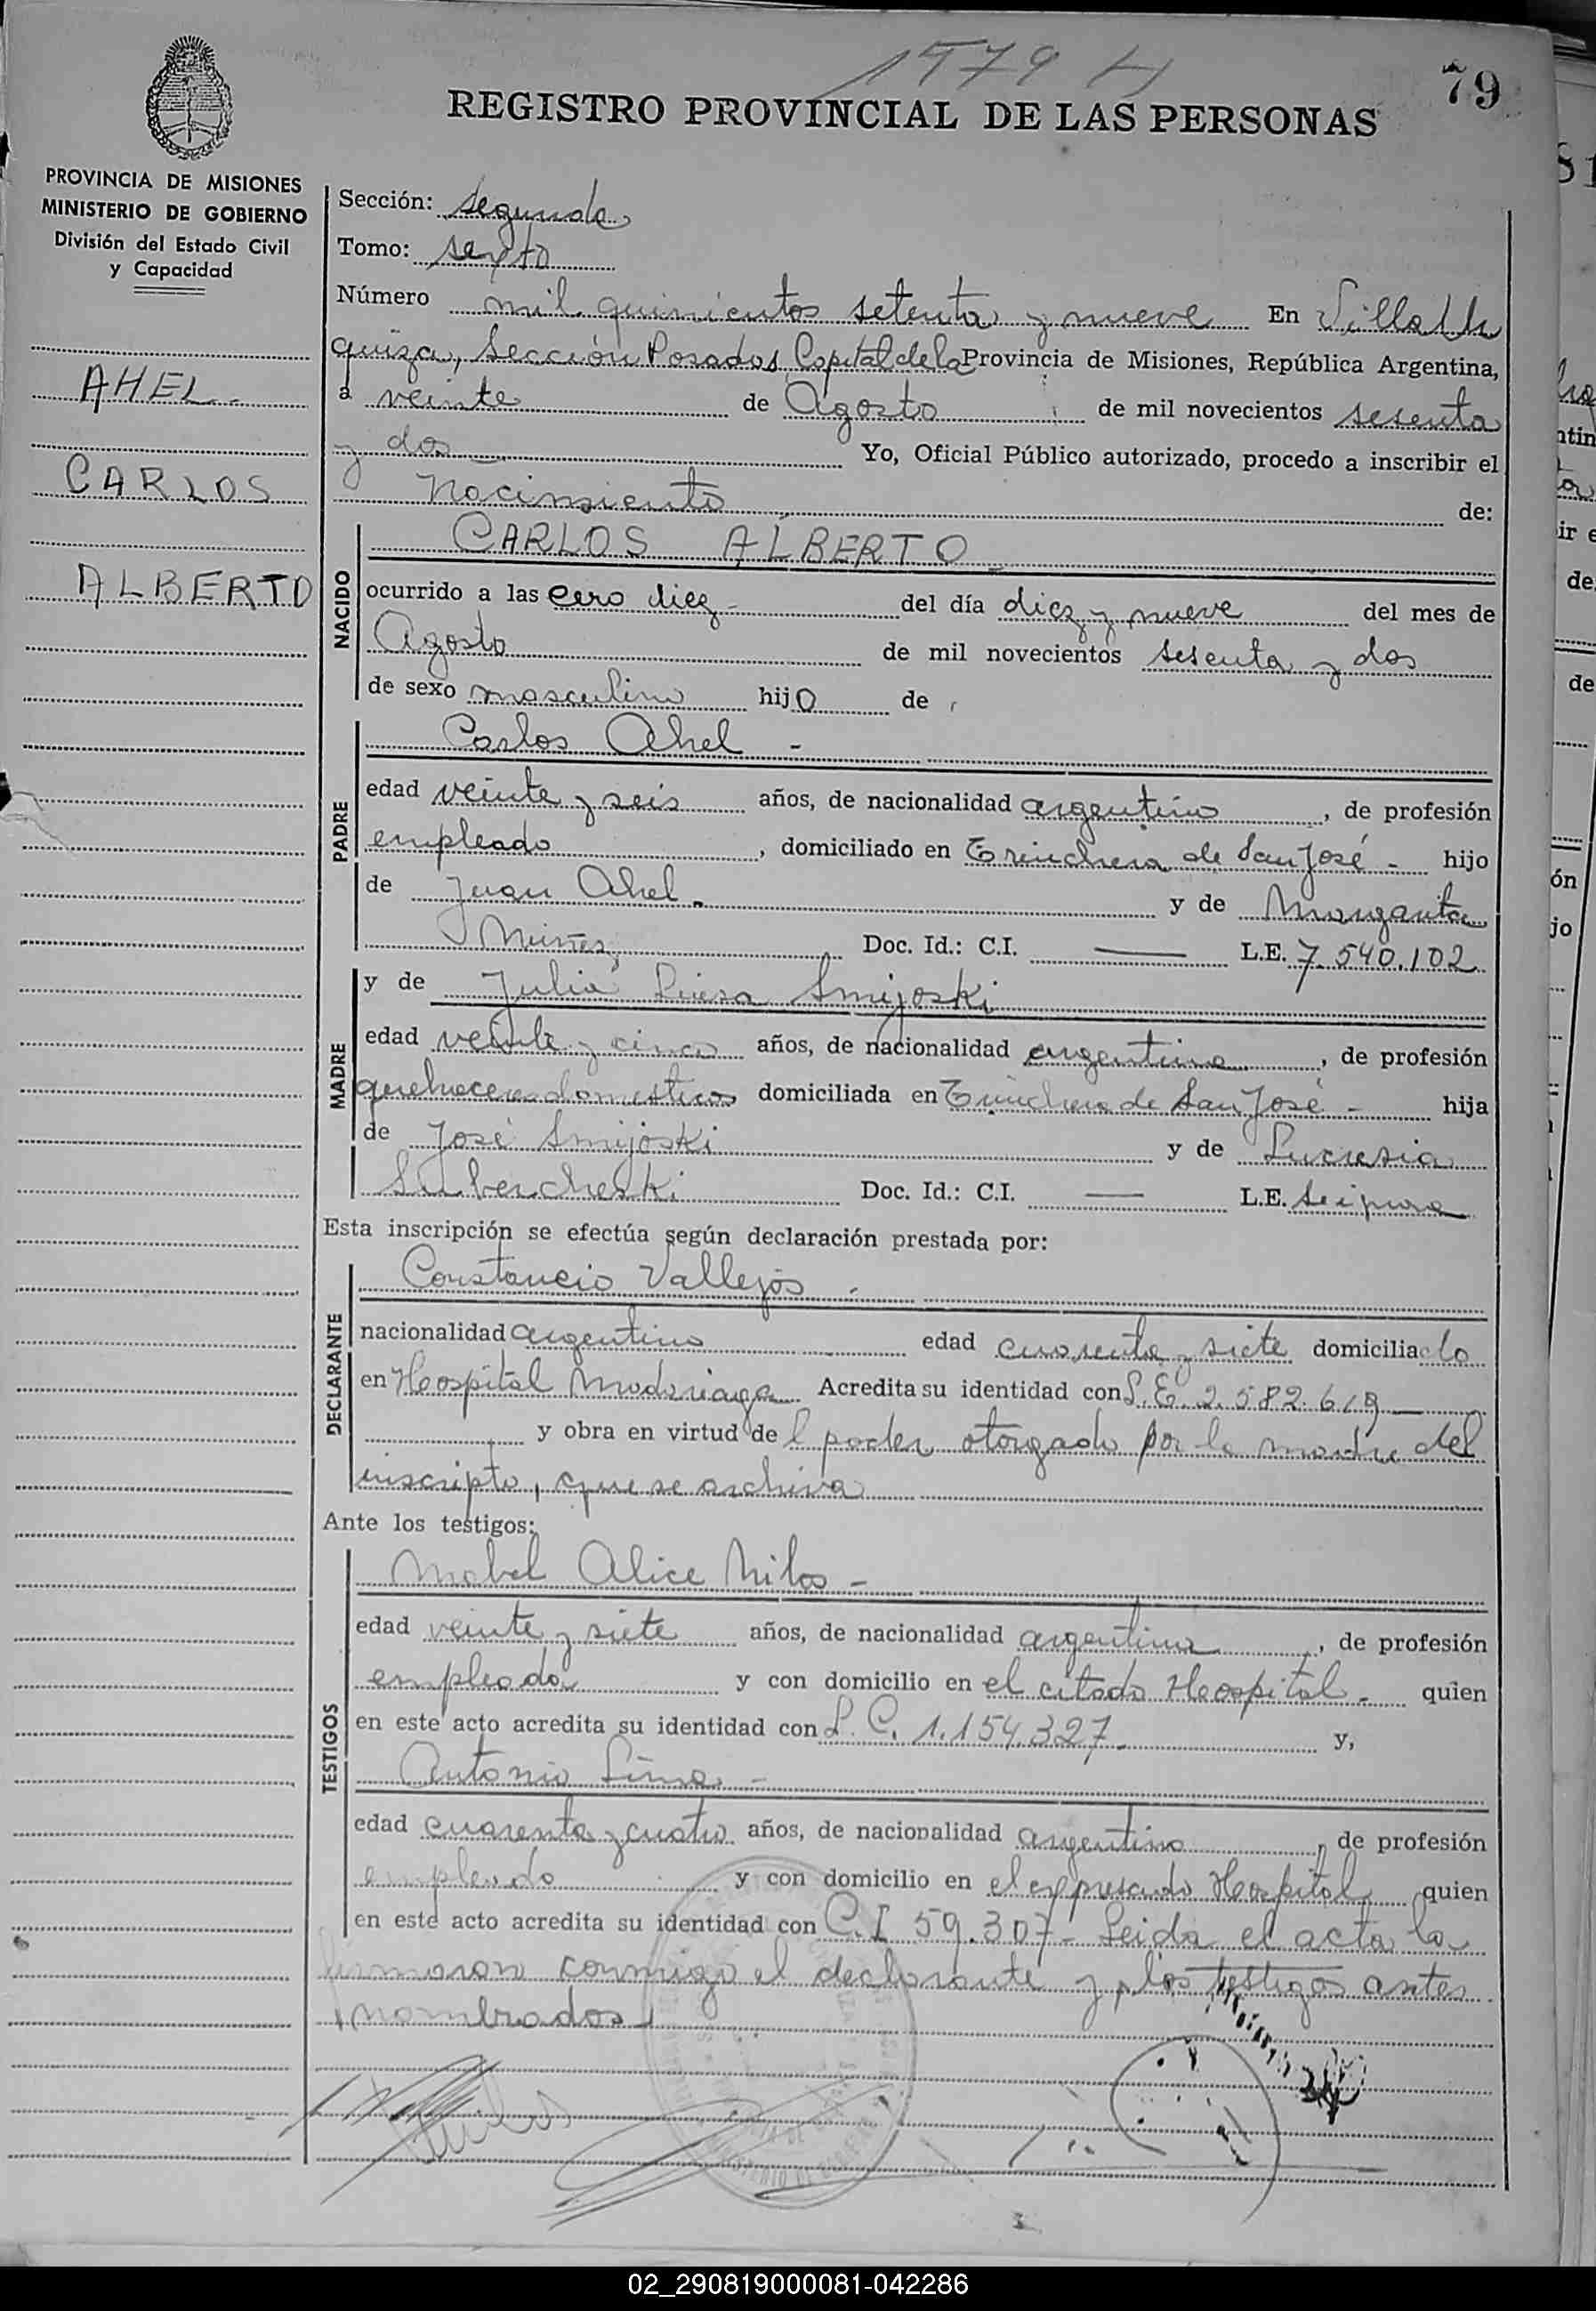 1579 H
79
REGISTRO PROVINCIAL DE LAS PERSONAS
PROVINCIA DE MISIONES
MINISTERIO DE GOBIERNO
División del Estado Civil
y Capacidad
AHEL.-
CARLOS
ALBERTO
Sección: segunda
Tomo: sexto
Número mil quinientos setenta y nueve En Villa Ur
quiza, Sección Posadas, Capital de la Provincia de Misiones, República Argentina,
a veinte de Agosto de mil novecientos sesenta
y dos Yo, Oficial Público autorizado, procedo a inscribir el
Nacimiento de:
NACIDO
CARLOS ALBERTO -
ocurrido a las cero diez - del día diez y nueve del mes de
Agosto de mil novecientos sesenta y dos
de sexo masculino hijo de
PADRE
Carlos Ahel -
edad veinte y seis años, de nacionalidad argentino, de profesión
empleado, domiciliado en Trinchera de San José - hijo
de Juan Ahel. y de Margarita
Doc. Id.: C.I. — L.E. 7.540.102
MADRE
y de Julia Luisa Smijoski
edad veinte y cinco años, de nacionalidad argentina, de profesión
quehaceres domesticos domiciliada en Trinchera de San José - hija
de José Smijoski y de Lucresia
Doc. Id.: C.I. — L.E.
Esta inscripción se efectúa según declaración prestada por:
DECLARANTE
Constancio Vallejos -
nacionalidad argentino edad cuarenta y siete domiciliado
en Hospital Madariaga Acredita su identidad con L.E. 2.582.619 —
y obra en virtud del poder otorgado por la madre del
inscripto, que se archiva
Ante los testigos:
TESTIGOS
Mabel Alice Milos -
edad veinte y siete años, de nacionalidad argentina, de profesión
empleada y con domicilio en el citado Hospital - quien
en este acto acredita su identidad con L.C. 1.154.327. y,
Antonio Lima -
edad cuarenta y cuatro años, de nacionalidad argentino, de profesión
empleado y con domicilio en el expresado Hospital quien
en este acto acredita su identidad con C.I 59.307- Leida el acta la
firmaron conmigo el declarante y los testigos antes
nombrados
02_290819000081-042286